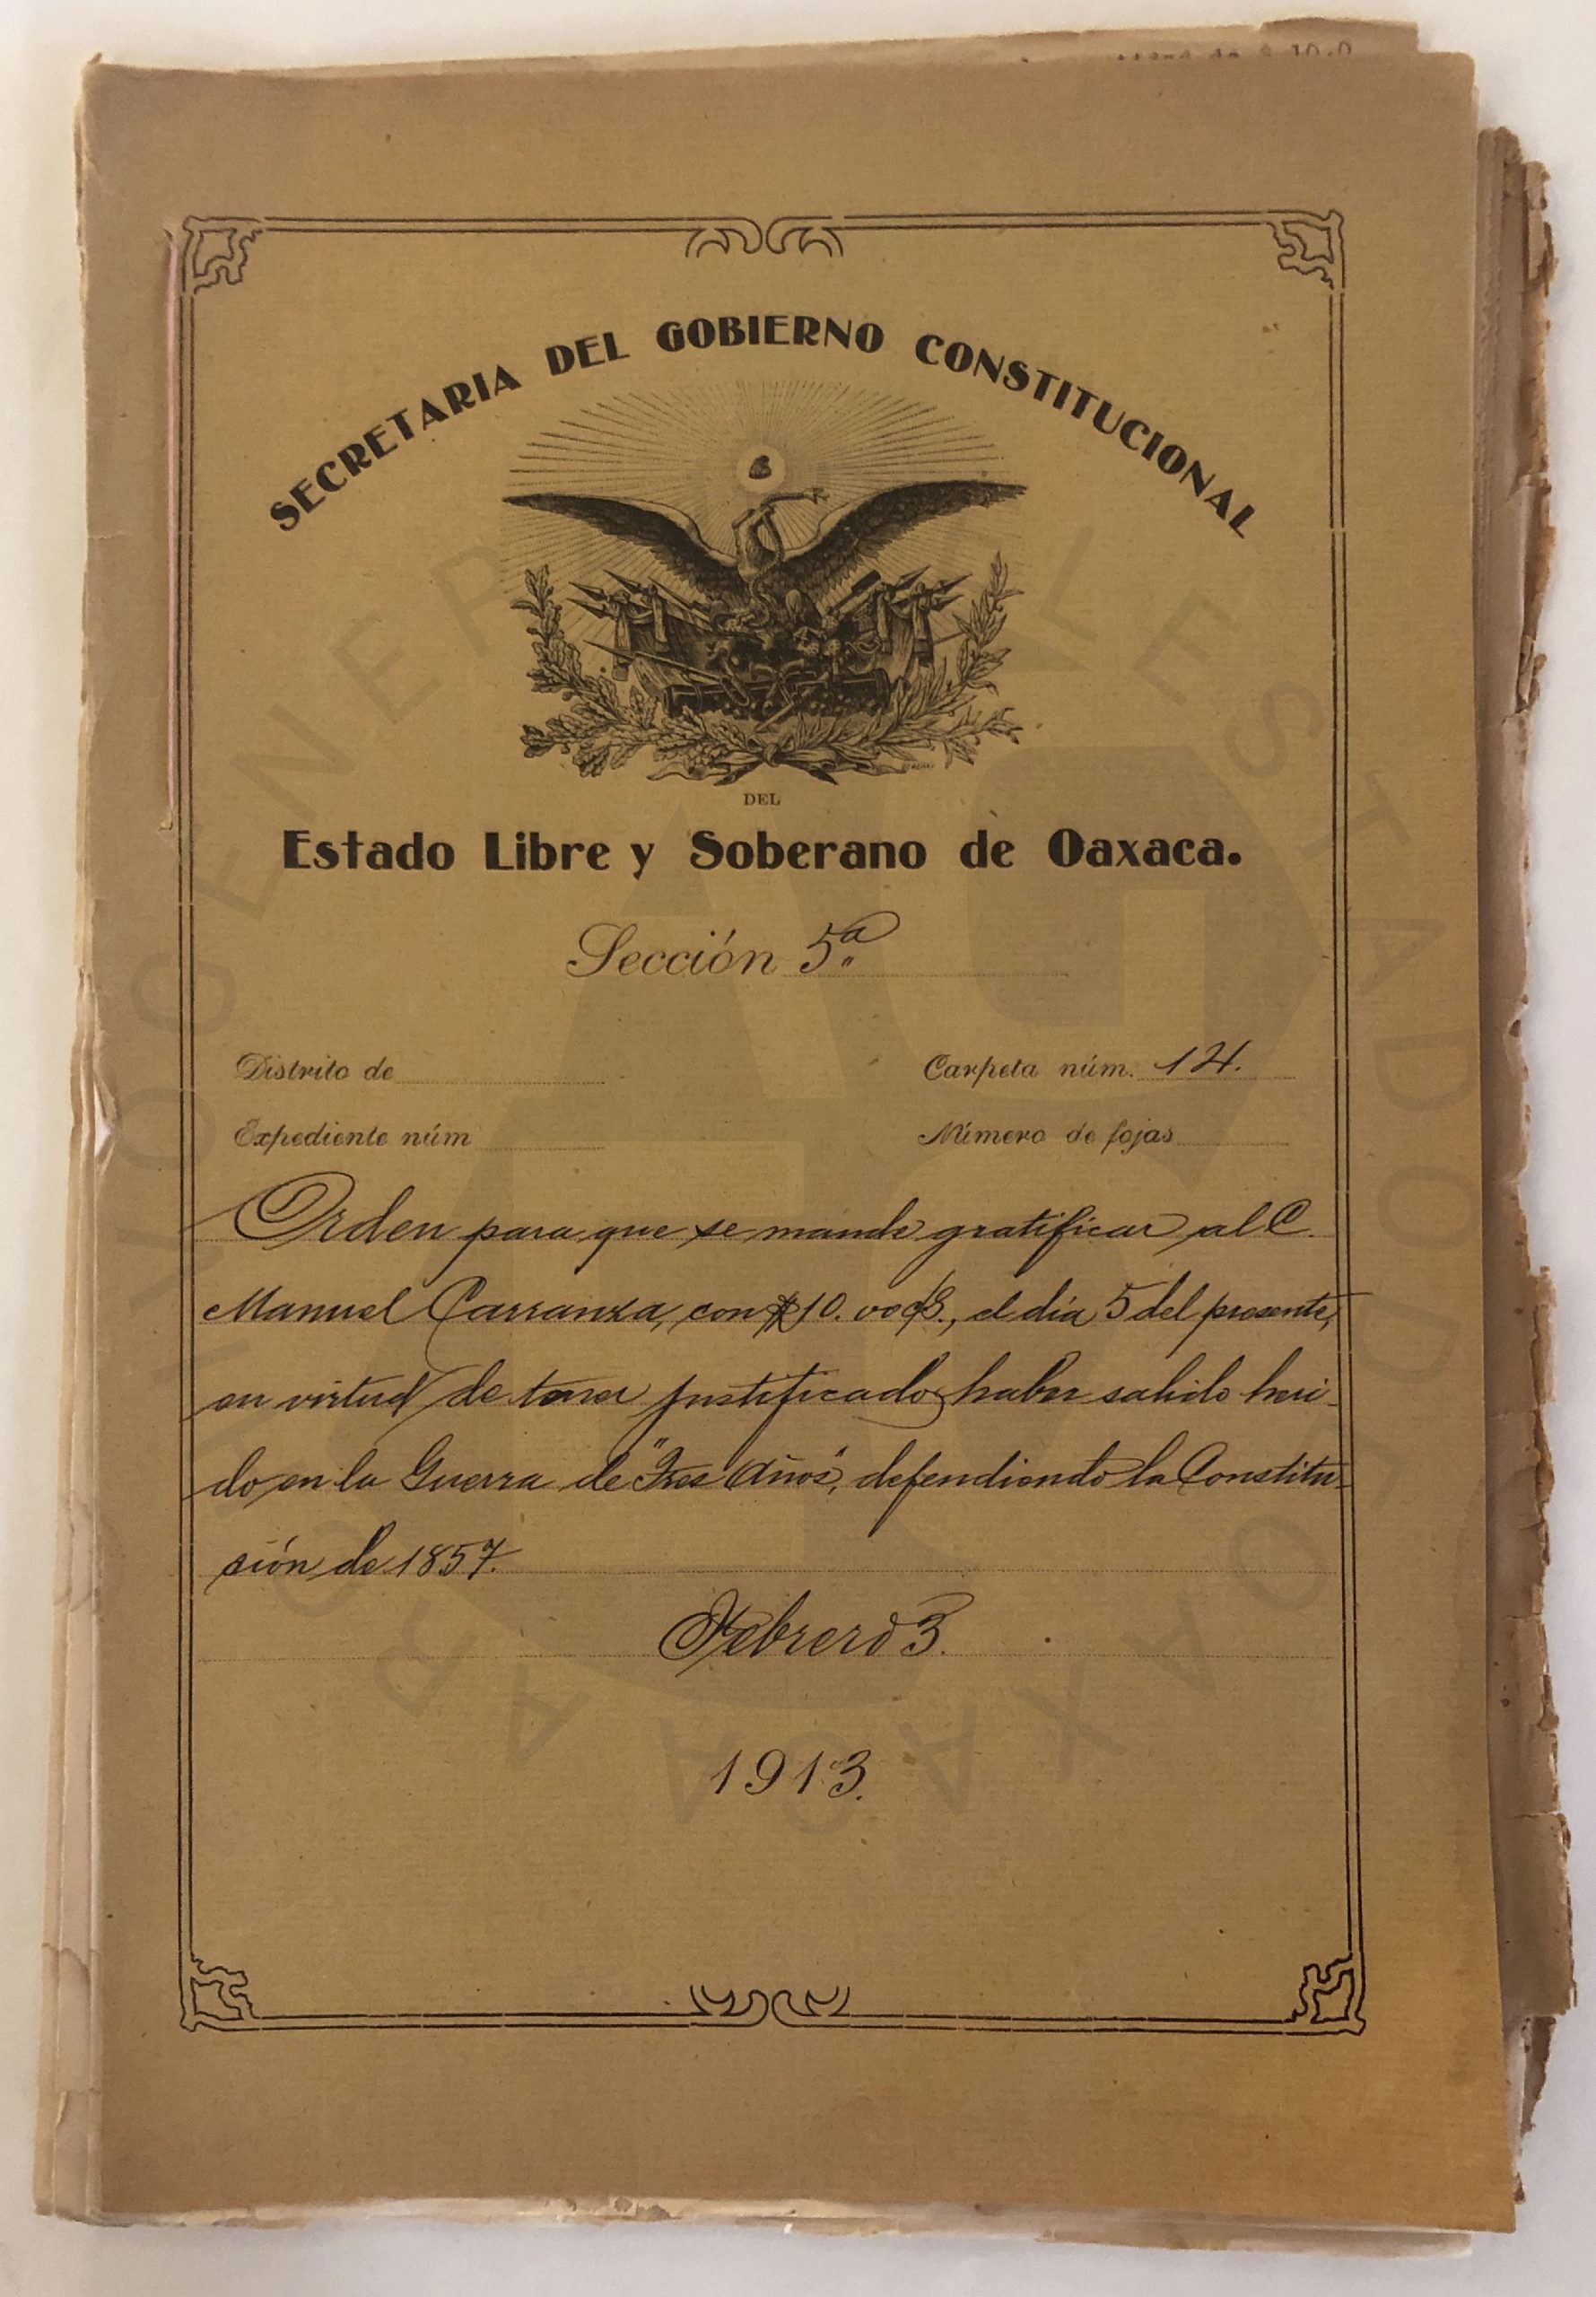 SECRETARIA DEL GOBIERNO CONSTITUCIONAL
DEL
Estado Libre y Soberano de Oaxaca.
Sección 5ª
Distrito de
Carpeta núm. 14.
Expediente núm
Número de fojas
Orden para que se mande gratificar al C.
Manuel Carranza, con $10.00 cs., el día 5 del presente,
en virtud de tener justificado haber salido heri-
do en la Guerra de "Tres Años", defendiendo la Constitu-
sión de 1857.
Febrero 3.
1913.